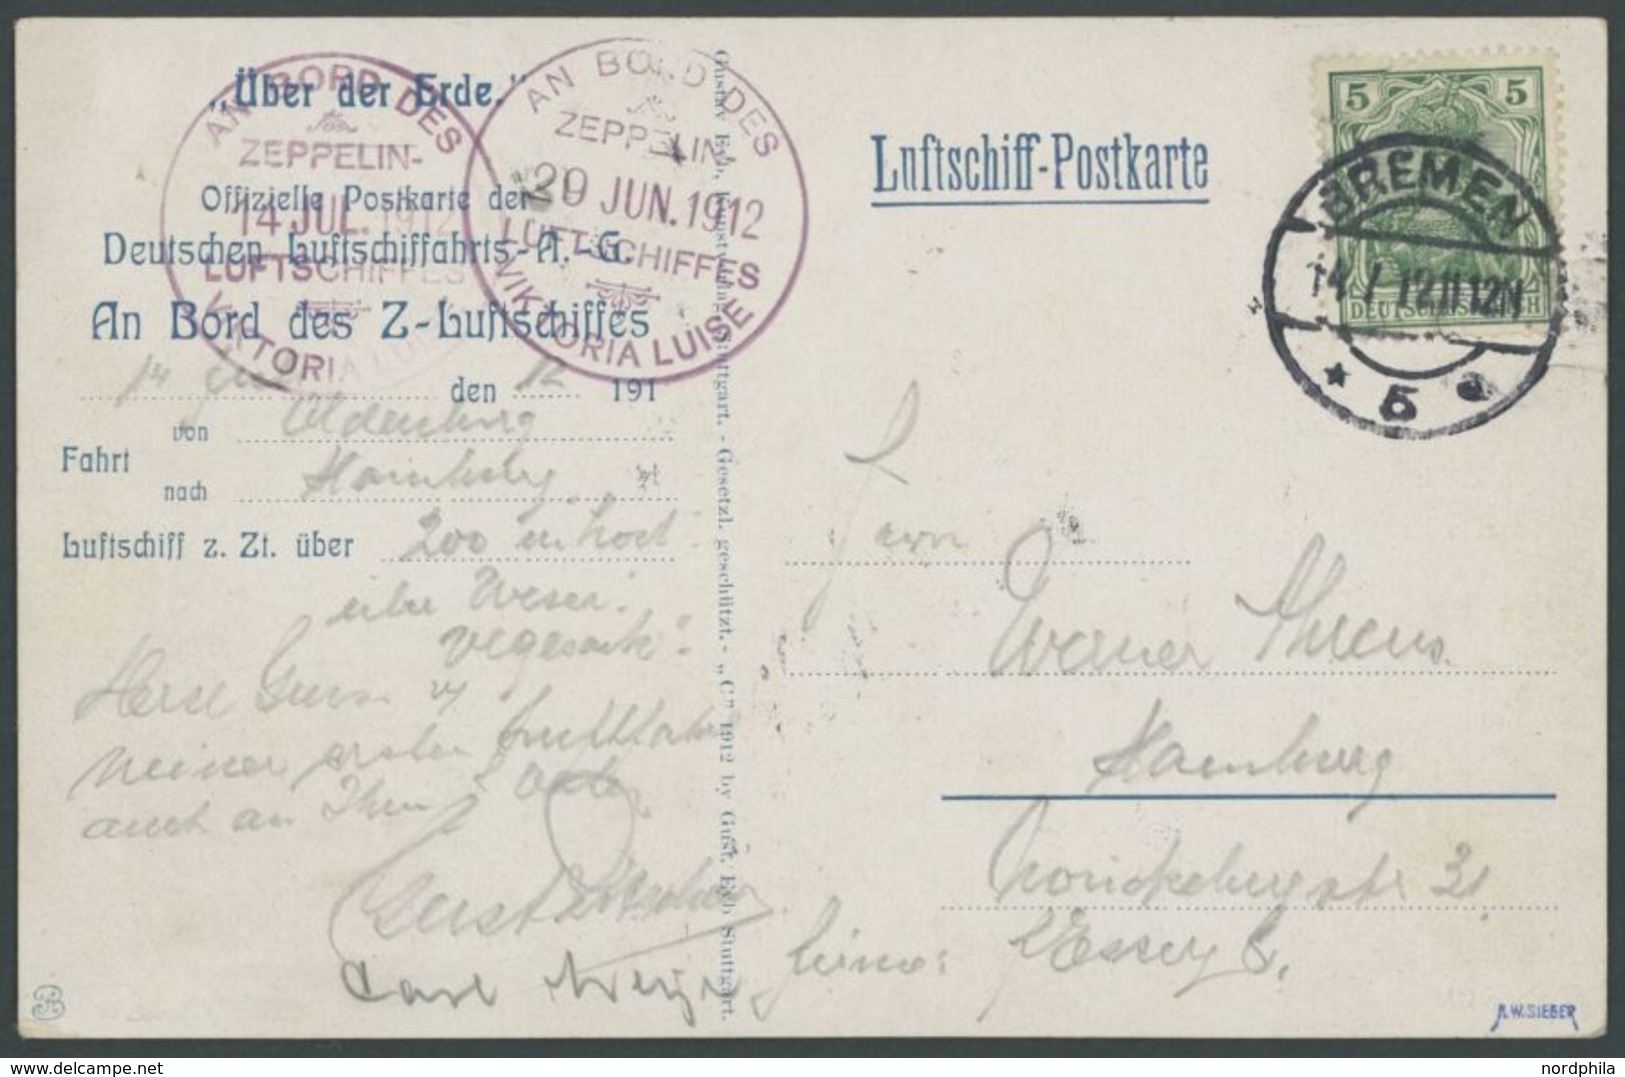 „Über der Erde.“
Offizielle Postkarte der
Deutschen Luftschiffahrts-A.-G.
An Bord des Z-Luftschiffes
14 den 12 191
von Oldenburg
Fahrt
nach Hamburg
Luftschiff z. Zt. über 200 m hoch
über Weser.
Vegesack.
meiner ersten
auch an Ihnen
Carl
AN BORD DES
ZEPPELIN-
14 JUL. 1912
LUFTSCHIFFES
VIKTORIA LUISE
AN BORD DES
ZEPPELIN
JUN. 1912
LUFTSCHIFFES
VIKTORIA LUISE
Gustav Eyb, Stuttgart. - Gesetzl. geschützt. - „C“ 1912 by Gust. Eyb Stuttgart.
Luftschiff-Postkarte
5 5
DEUTSCHES REICH
BREMEN
14 7 12 11 12N
* 5 a
Herrn
Werner Ahrens
Hamburg
31
A.W. SIEBER
www.delcampe.net
nordphila